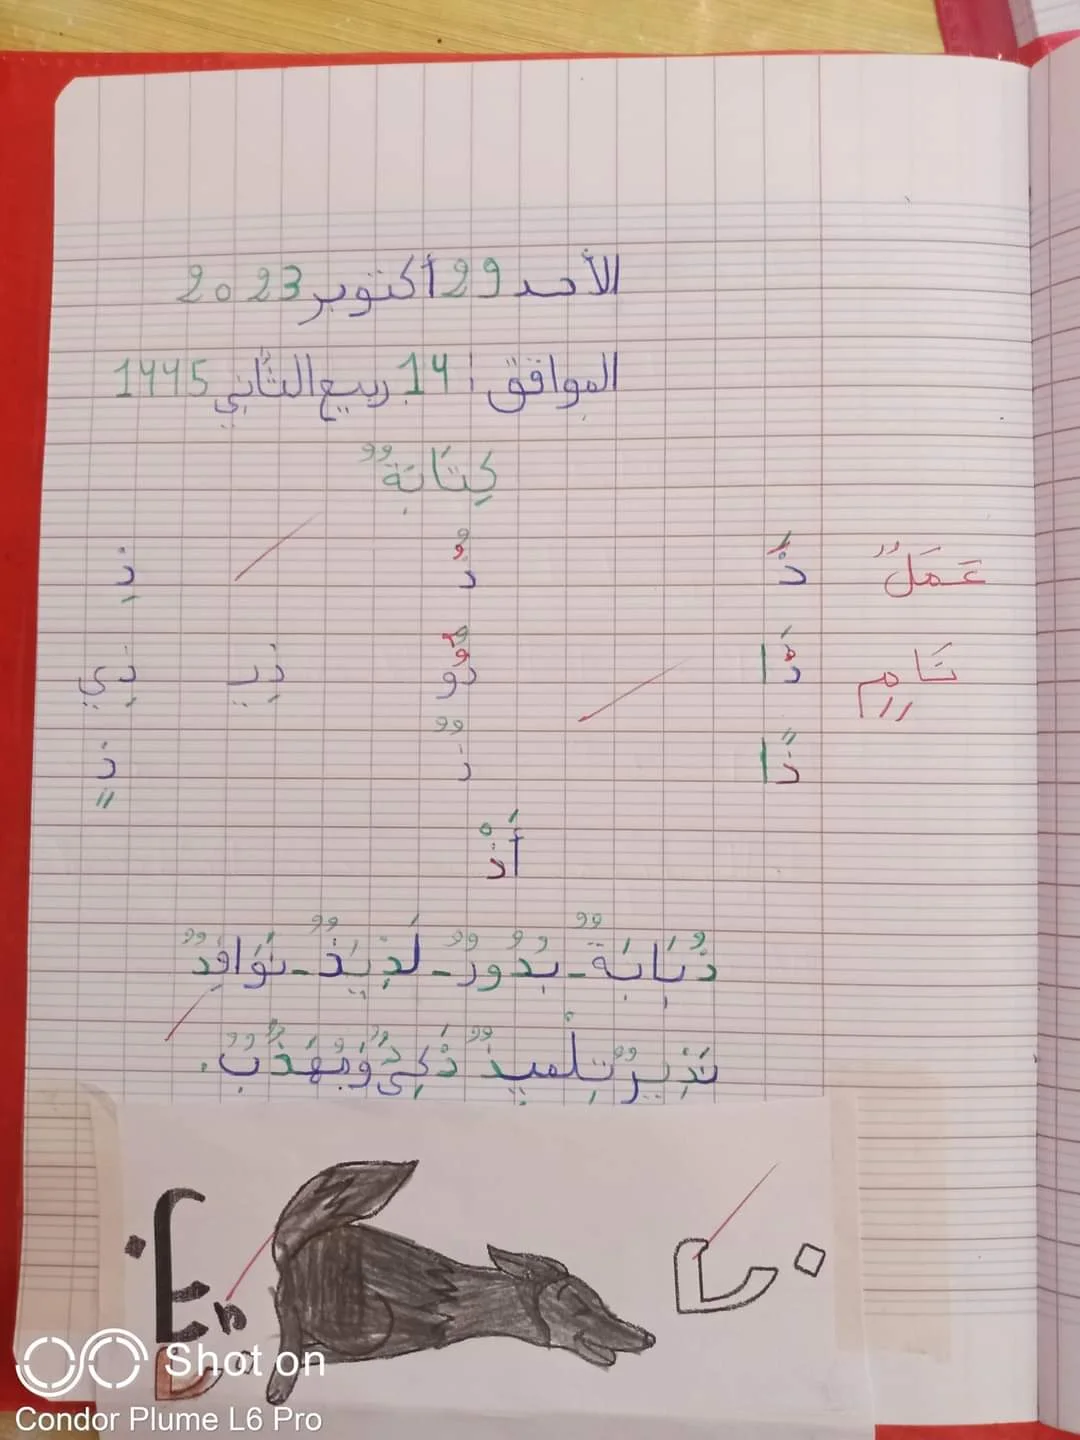 الأحد 29 أكتوبر 2023
الموافق: 14 ربيع الثاني 1445
كِتَابَةٌ
عَمَلٌ ذَ ذُ ذِ
تَامٍّ ذَا ذُو ذِيـ ذِي
ذًا ذٌ ذٍ
أَذْ
ذُبَابَةٌ - بُذُورٌ - لَذِيذٌ - نَوَافِذٌ
نَذِيرٌ تِلْمِيذٌ ذَكِيٌّ وَمُهَذَّبٌ.
Shot on
Condor Plume L6 Pro